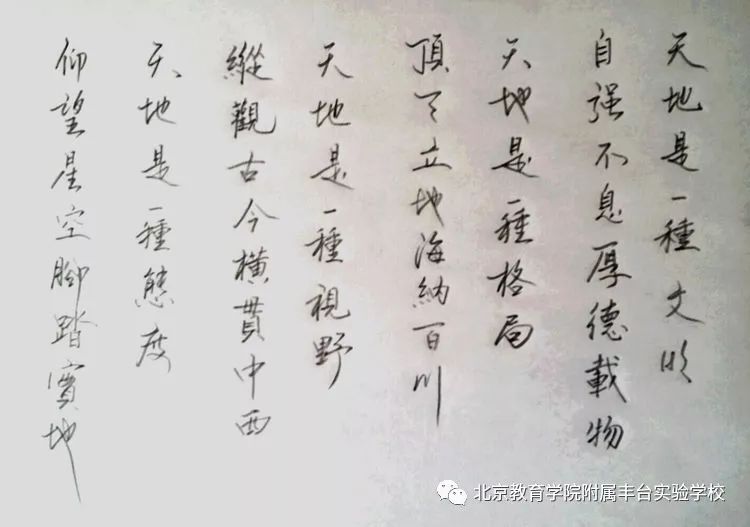 天地是一種文明
自强不息厚德載物
天地是一種格局
頂天立地海納百川
天地是一種視野
縱觀古今橫貫中西
天地是一種態度
仰望星空腳踏實地
北京教育学院附属丰台实验学校